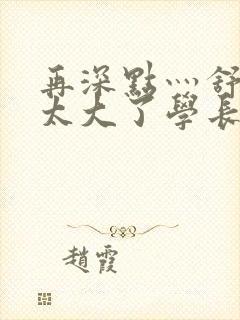 再深點灬舒
太大了學長
趙霞